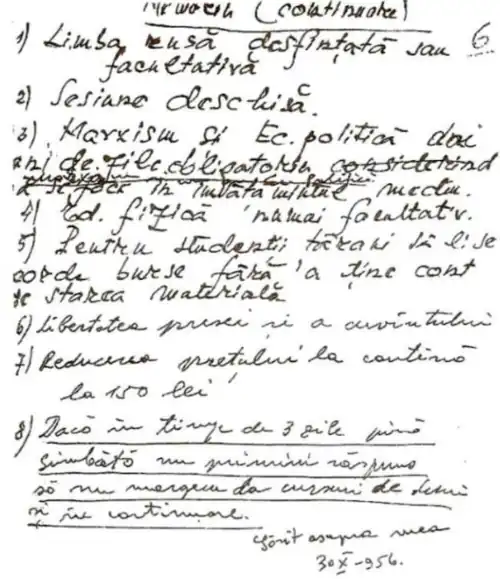 (continuare)
6
1) Limba rusă desfințată sau
facultativă
2) Sesiune deschisă.
3) Marxism și Ec. politică doi
ani de zile obligatoriu considerînd
se face în mediu.
4) Ed. fizică numai facultativ.
5) Pentru studenții țărani să li se
acorde burse fără a ține cont
de starea materială
6) Libertatea presei și a cuvîntului
7) Reducerea prețului la cantină
la 150 lei
8) Dacă în timp de 3 zile pînă
Simbătă nu primim răspuns
să nu mergem la cursuri de luni
și în continuare.
Găsit asupra mea
30 X-956.